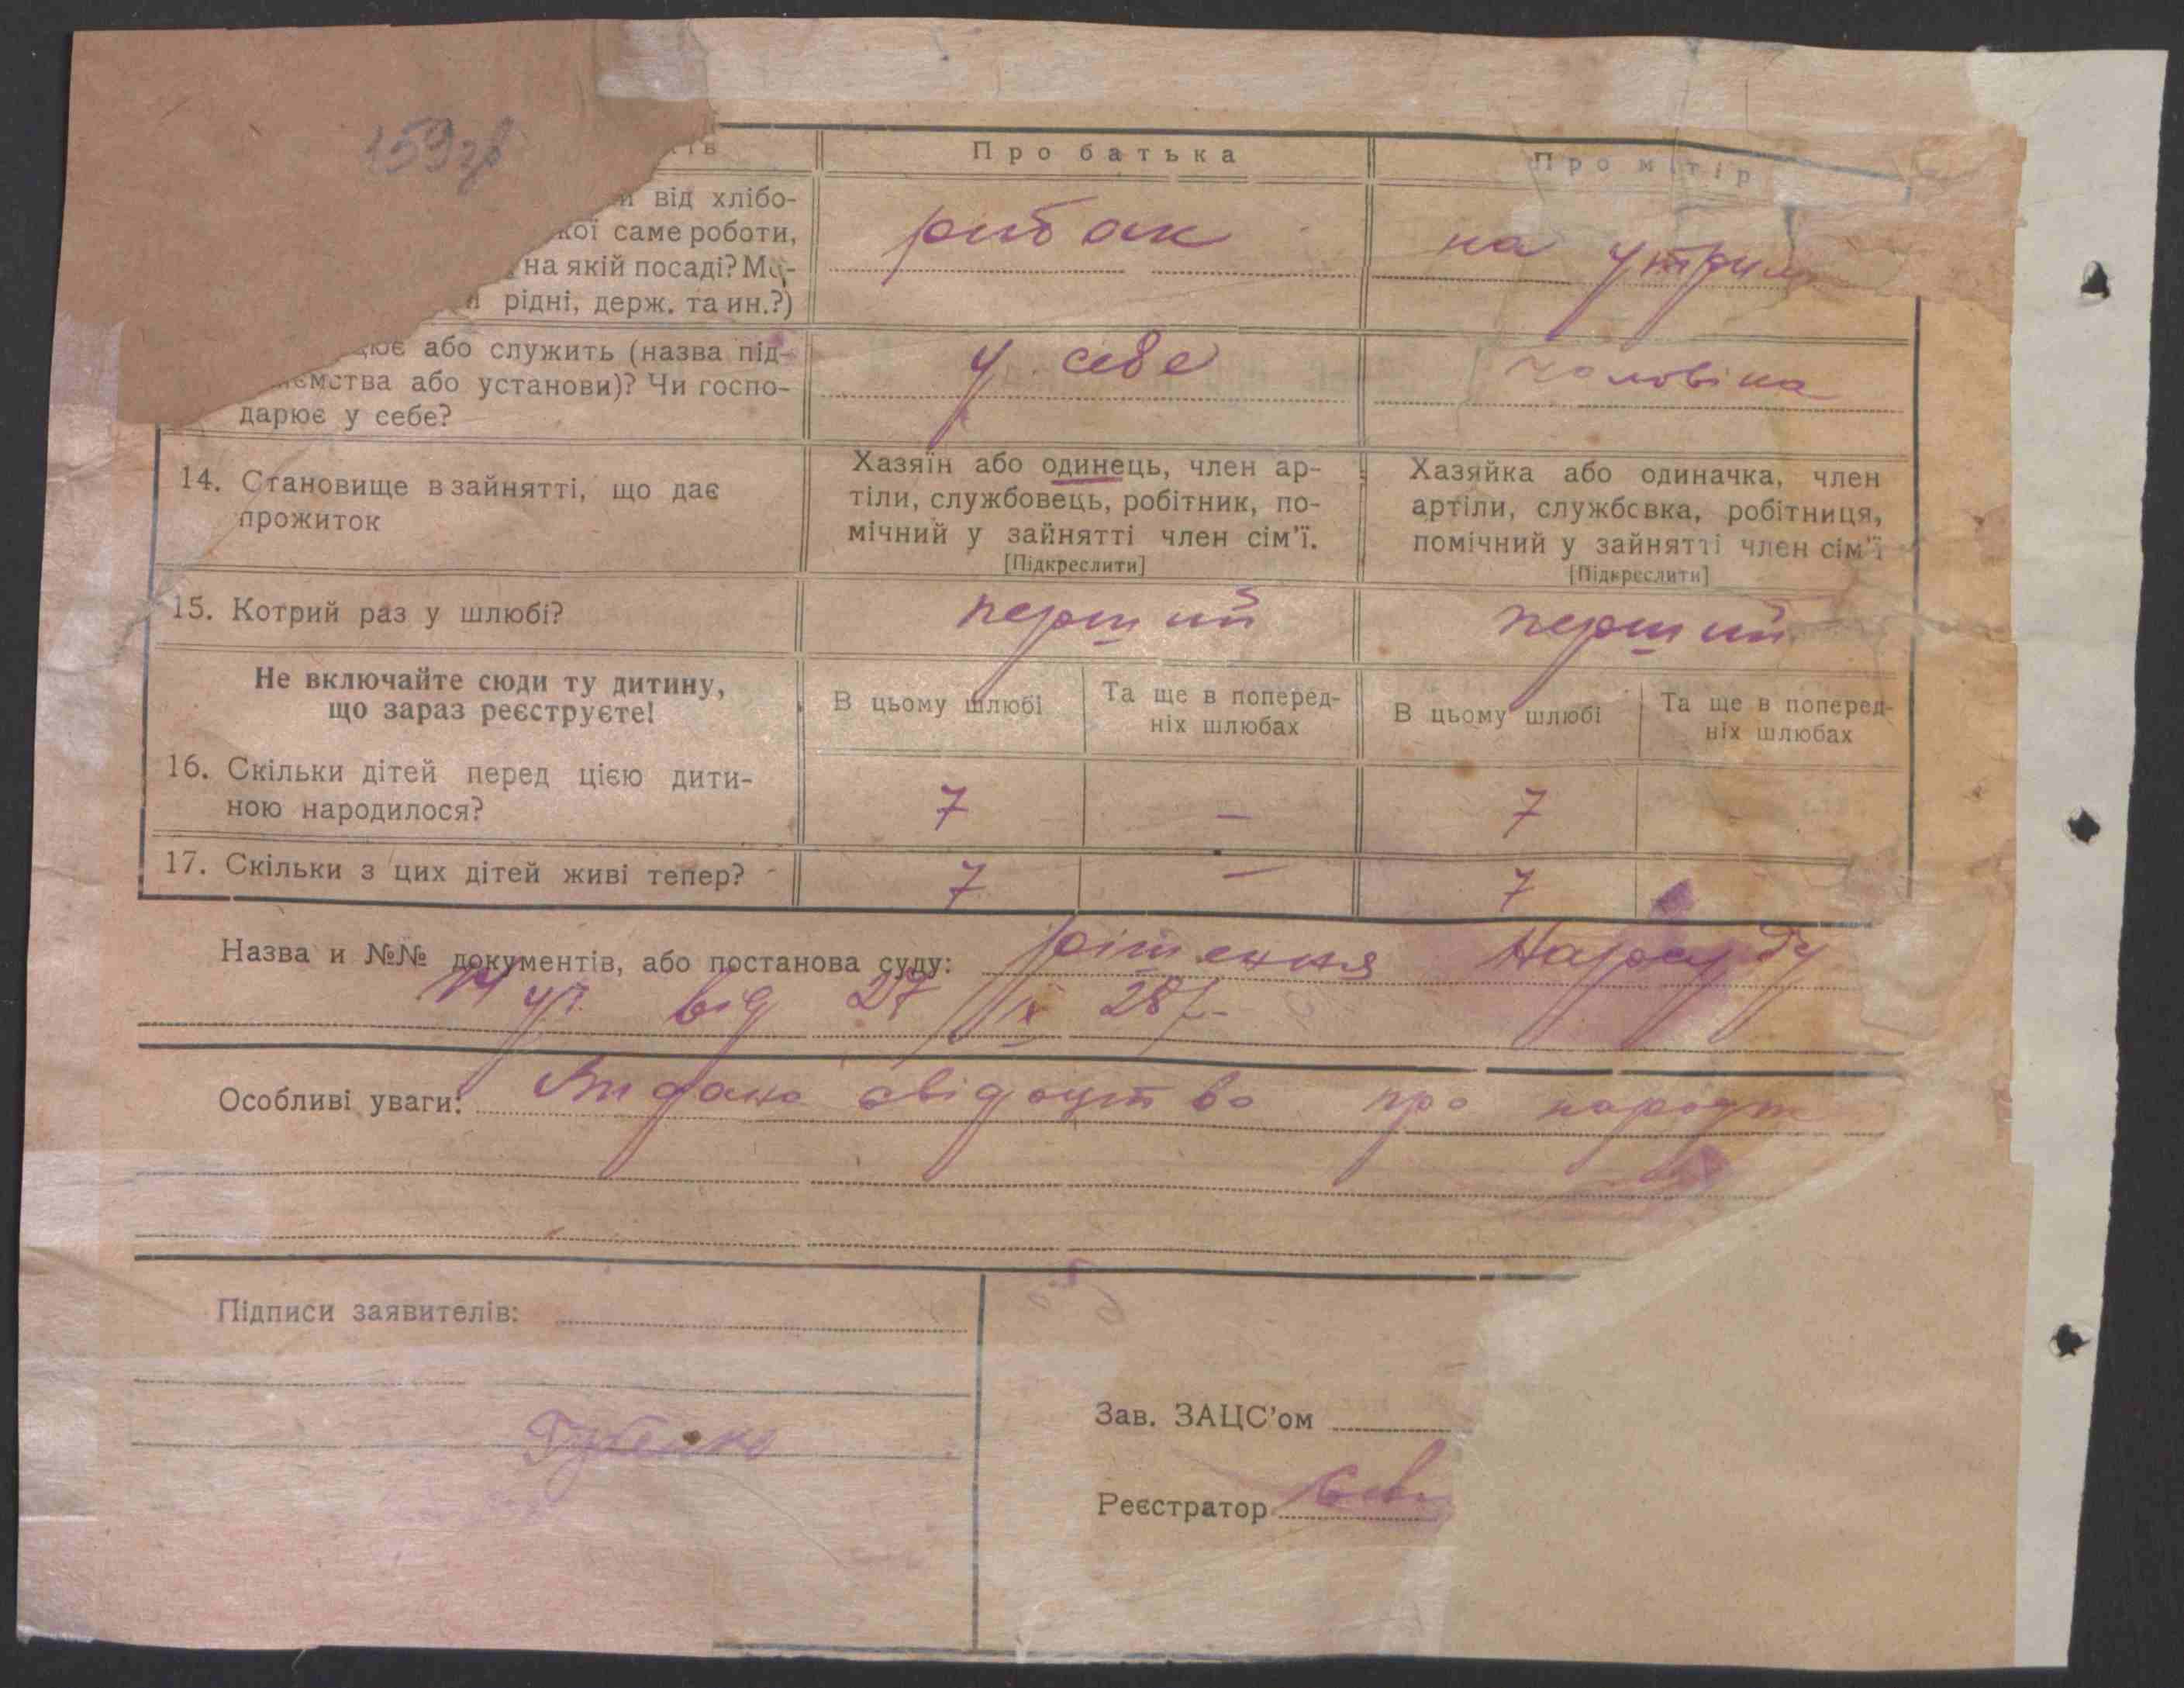 159 зв
ів
Про батька
Про матір
и від хлібо-
рибак
на утрим
кої саме роботи,
на якій посаді? Ма-
и рідні, держ. та ин.?)
цює або служить (назва під-
у себе
чоловіка
ємства або установи)? Чи госпо-
дарює у себе?
14. Становище в зайнятті, що дає
прожиток
Хазяїн або одинець, член ар-
тіли, службовець, робітник, по-
мічний у зайнятті член сім'ї.
[Підкреслити]
Хазяйка або одиначка, член
артіли, службовка, робітниця,
помічний у зайнятті член сім'ї
[Підкреслити]
15. Котрий раз у шлюбі?
перший
перший
Не включайте сюди ту дитину,
що зараз реєструєте!
В цьому шлюбі
Та ще в поперед-
ніх шлюбах
В цьому шлюбі
Та ще в поперед-
ніх шлюбах
16. Скільки дітей перед цією дити-
ною народилося?
7
—
7
17. Скільки з цих дітей живі тепер?
7
—
7
Назва и №№ документів, або постанова суду: рішення Нарсуду
від 27/ІХ 28 р.
Особливі уваги: Видано свідоцтво про народж
Підписи заявителів:
Губенко
Зав. ЗАЦС'ом
Реєстратор